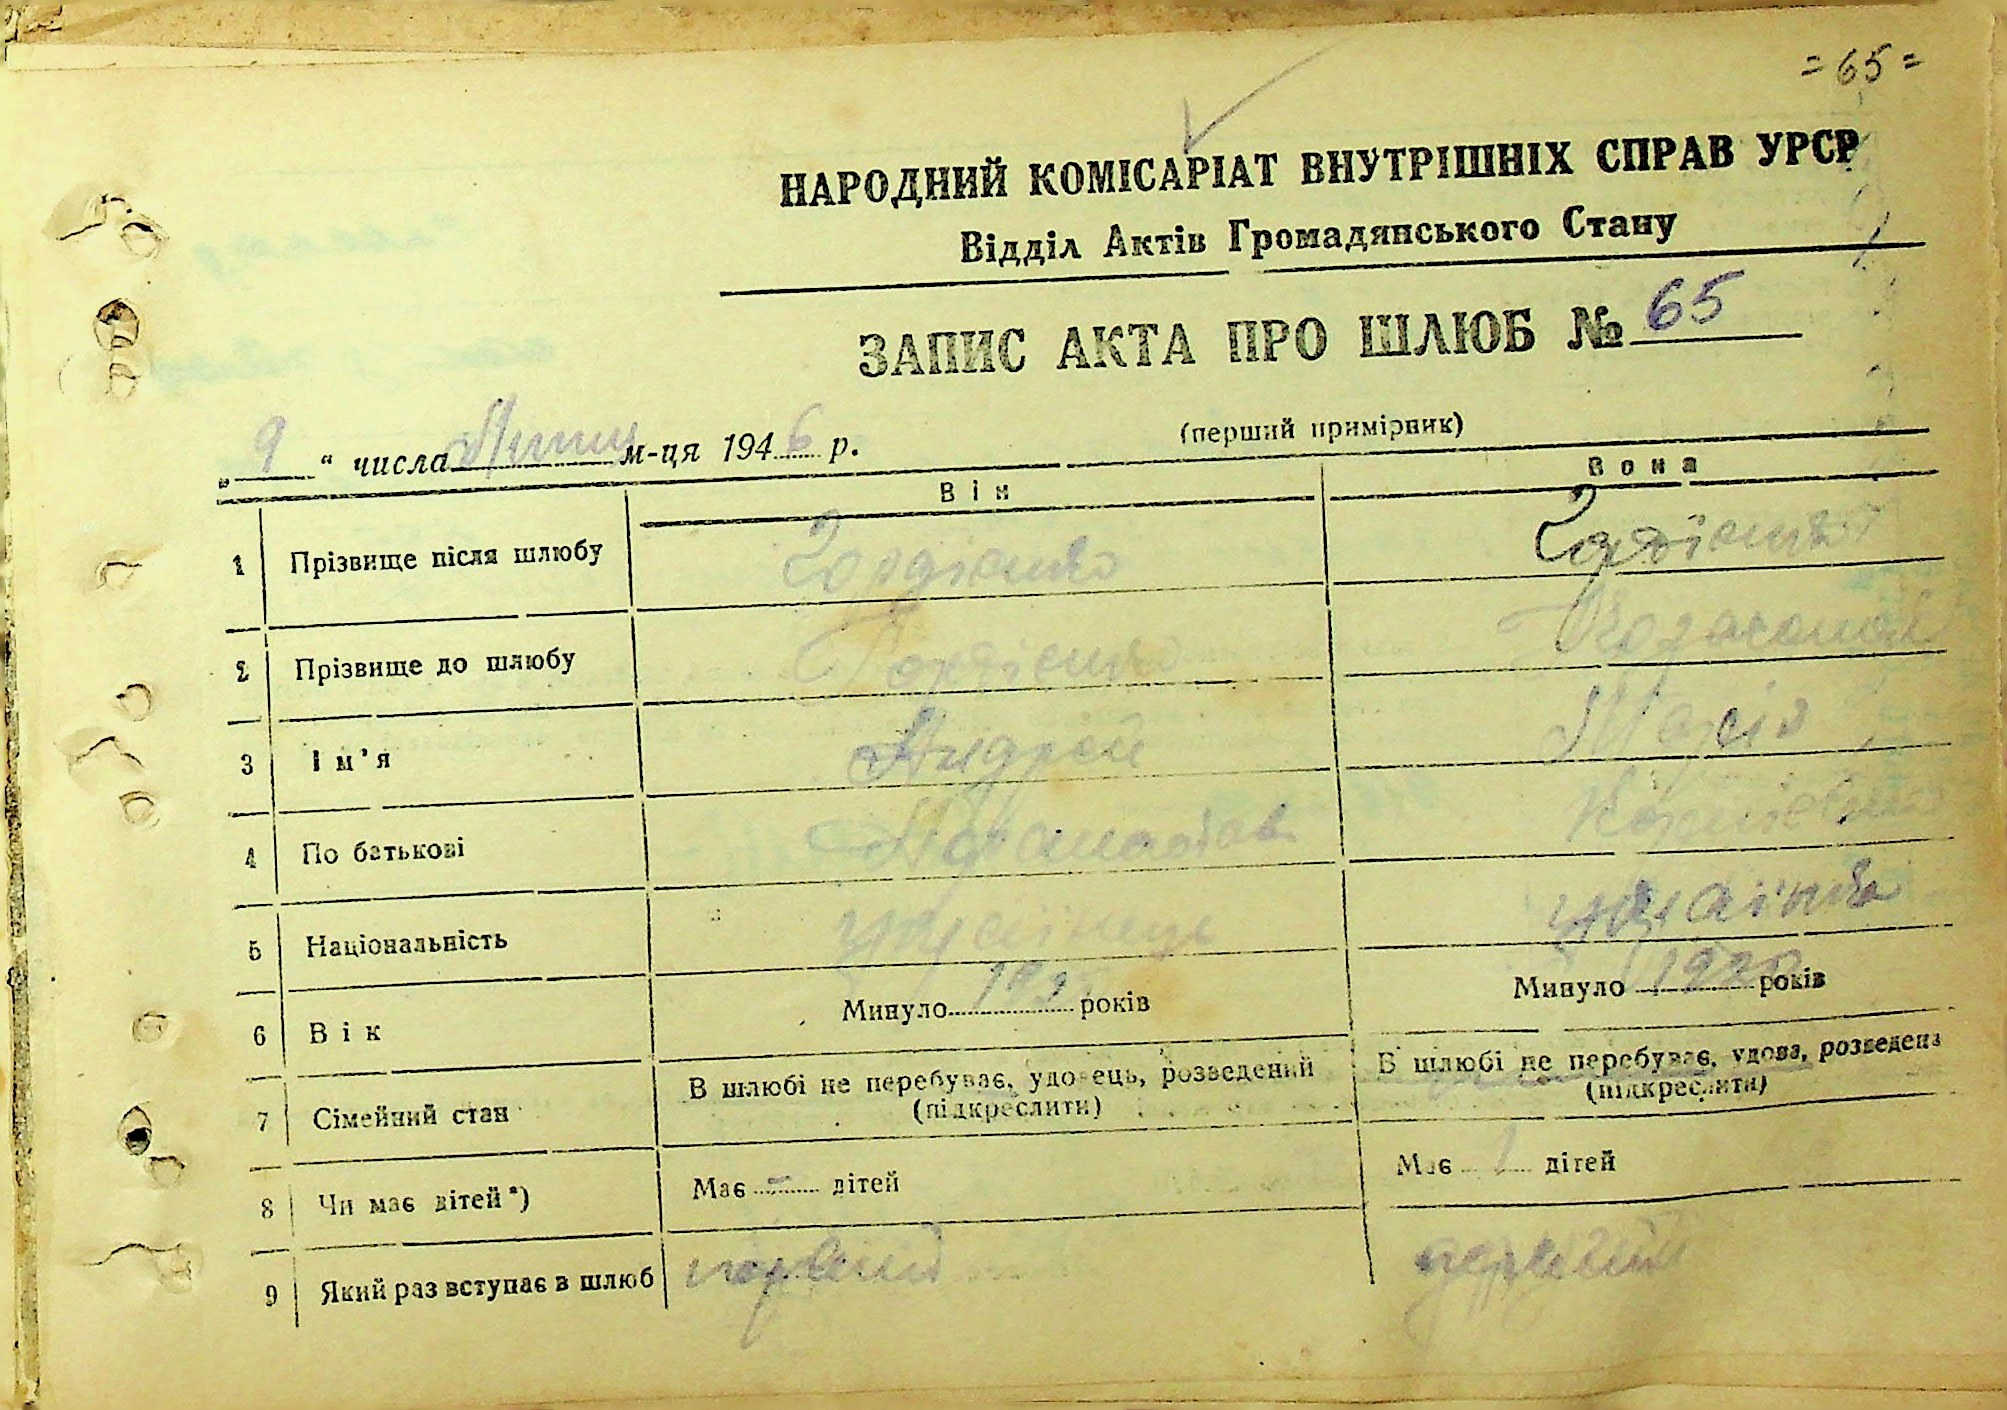 = 65 =
НАРОДНИЙ КОМІСАРІАТ ВНУТРІШНІХ СПРАВ УРСР
Відділ Актів Громадянського Стану
ЗАПИС АКТА ПРО ШЛЮБ № 65
(перший примірник)
„ 9 “ числа м-ця 1946 р.
Він Вона
1 Прізвище після шлюбу Гордієнко Гордієнко
2 Прізвище до шлюбу Гордієнко
3 Ім'я Андрей Марія
4 По батькові
5 Національність українець українка
6 Вік Минуло років Минуло 1920 років
7 Сімейний стан В шлюбі не перебуває, удовець, розведений (підкреслити) В шлюбі не перебуває, удова, розведена (підкреслити)
8 Чи має дітей*) Має - дітей Має 1 дітей
9 Який раз вступає в шлюб первий